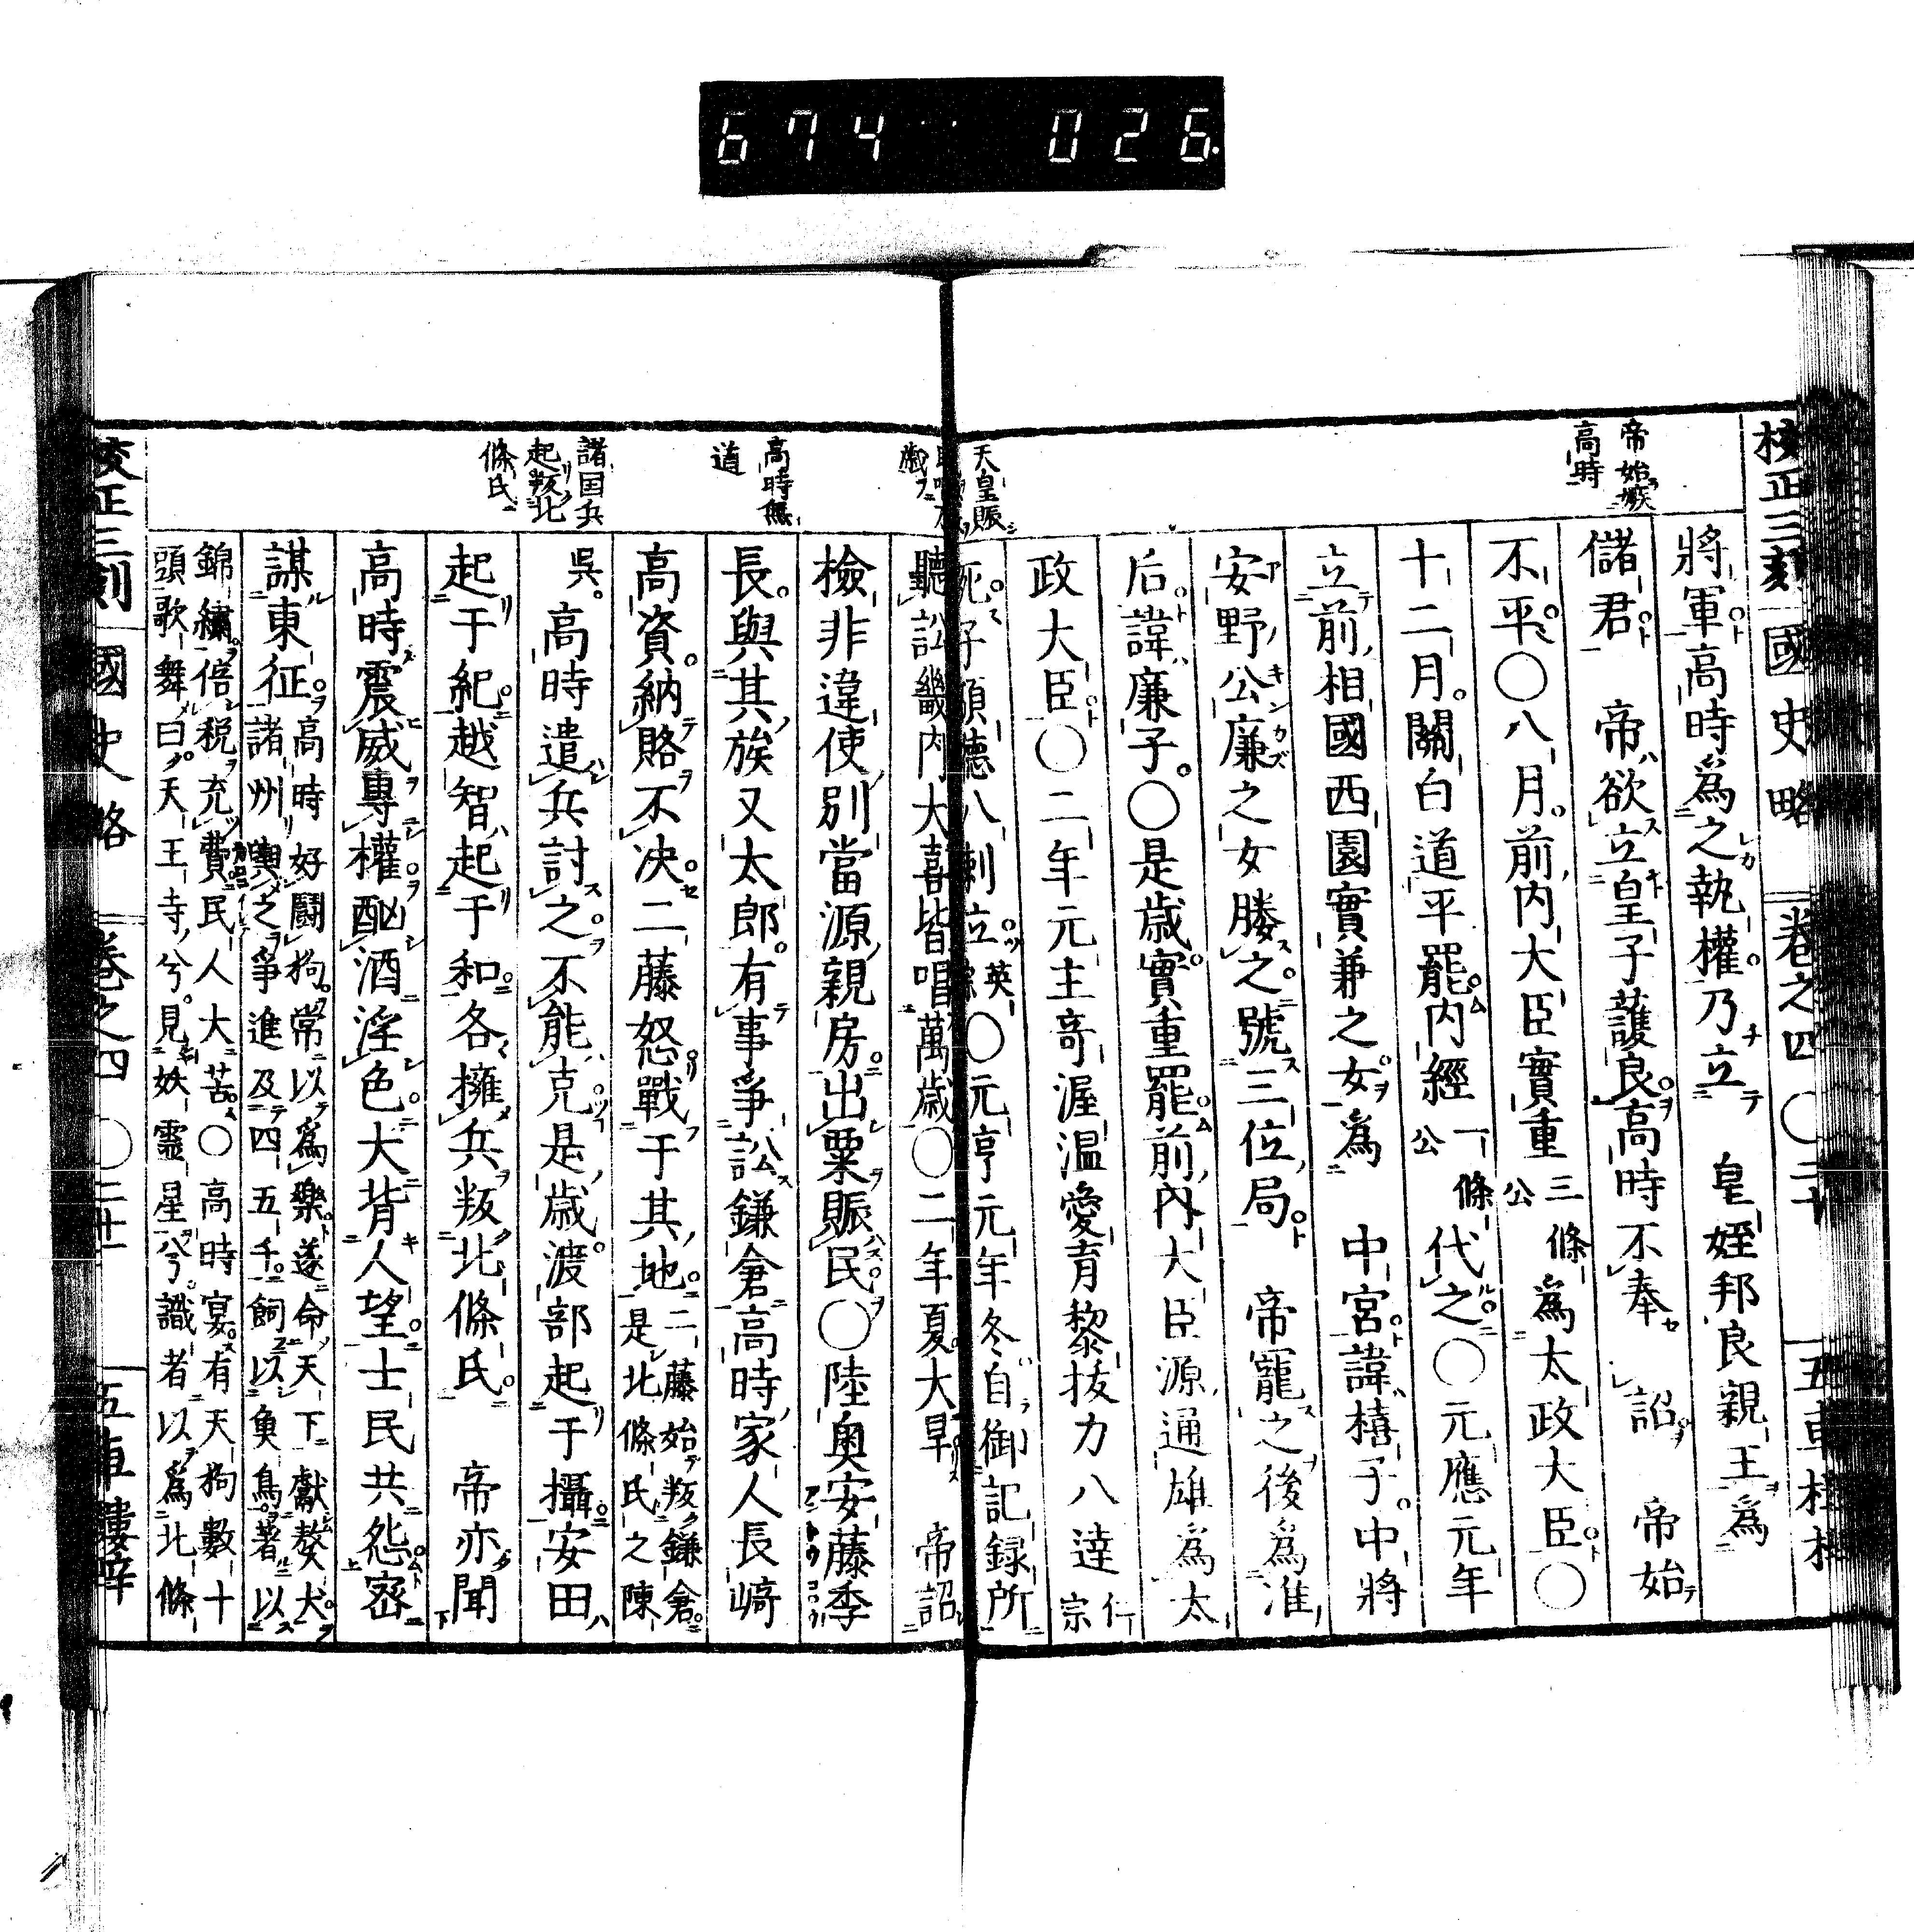 674 026
校正三刻 國史略 卷之四 〇二十 五車樓
帝始嫉
高時
將軍高時爲之執權乃立 皇姪邦良親王爲
儲君 帝欲立皇子護良高時不奉 詔 帝始
不平〇八月前內大臣實重三條公爲太政大臣〇
十二月關白道平罷內經一條公代之〇元應元年
立前相國西園實兼之女爲 中宮諱禧子中將
安野公廉之女勝之號三位局 帝寵之後爲准
后諱廉子〇是歲實重罷前內大臣源通雄爲太
政大臣〇二年元主奇渥溫愛育黎拔力八達仁宗
死子碩德八剌立英宗〇元亨元年冬自御記録所
天皇賑
聽訟畿內大喜皆唱萬歲〇二年夏大旱 帝詔
檢非違使別當源親房出粟賑民〇陸奧安藤季
高時無
道
長與其族又太郎有事爭訟鎌倉高時家人長崎
高資納賂不决二藤怒戰于其地二藤始叛鎌倉是北條氏之陳
吳高時遣兵討之不能克是歲渡部起于攝安田
諸国兵
起叛北
條氏
起于紀越智起于和各擁兵叛北條氏 帝亦聞
高時震威專權酗酒淫色大背人望士民共怨密
謀東征高時好鬪狗常以爲樂遂命天下獻獒犬
諸州輿之爭進及四五千飼以魚鳥著以
錦繡倍税充費民人大苦〇高時宴有天狗數十
頭歌舞曰天王寺兮見妖靈星兮識者以爲北條
校正三刻 國史略 卷之四 〇二十一 五車樓梓